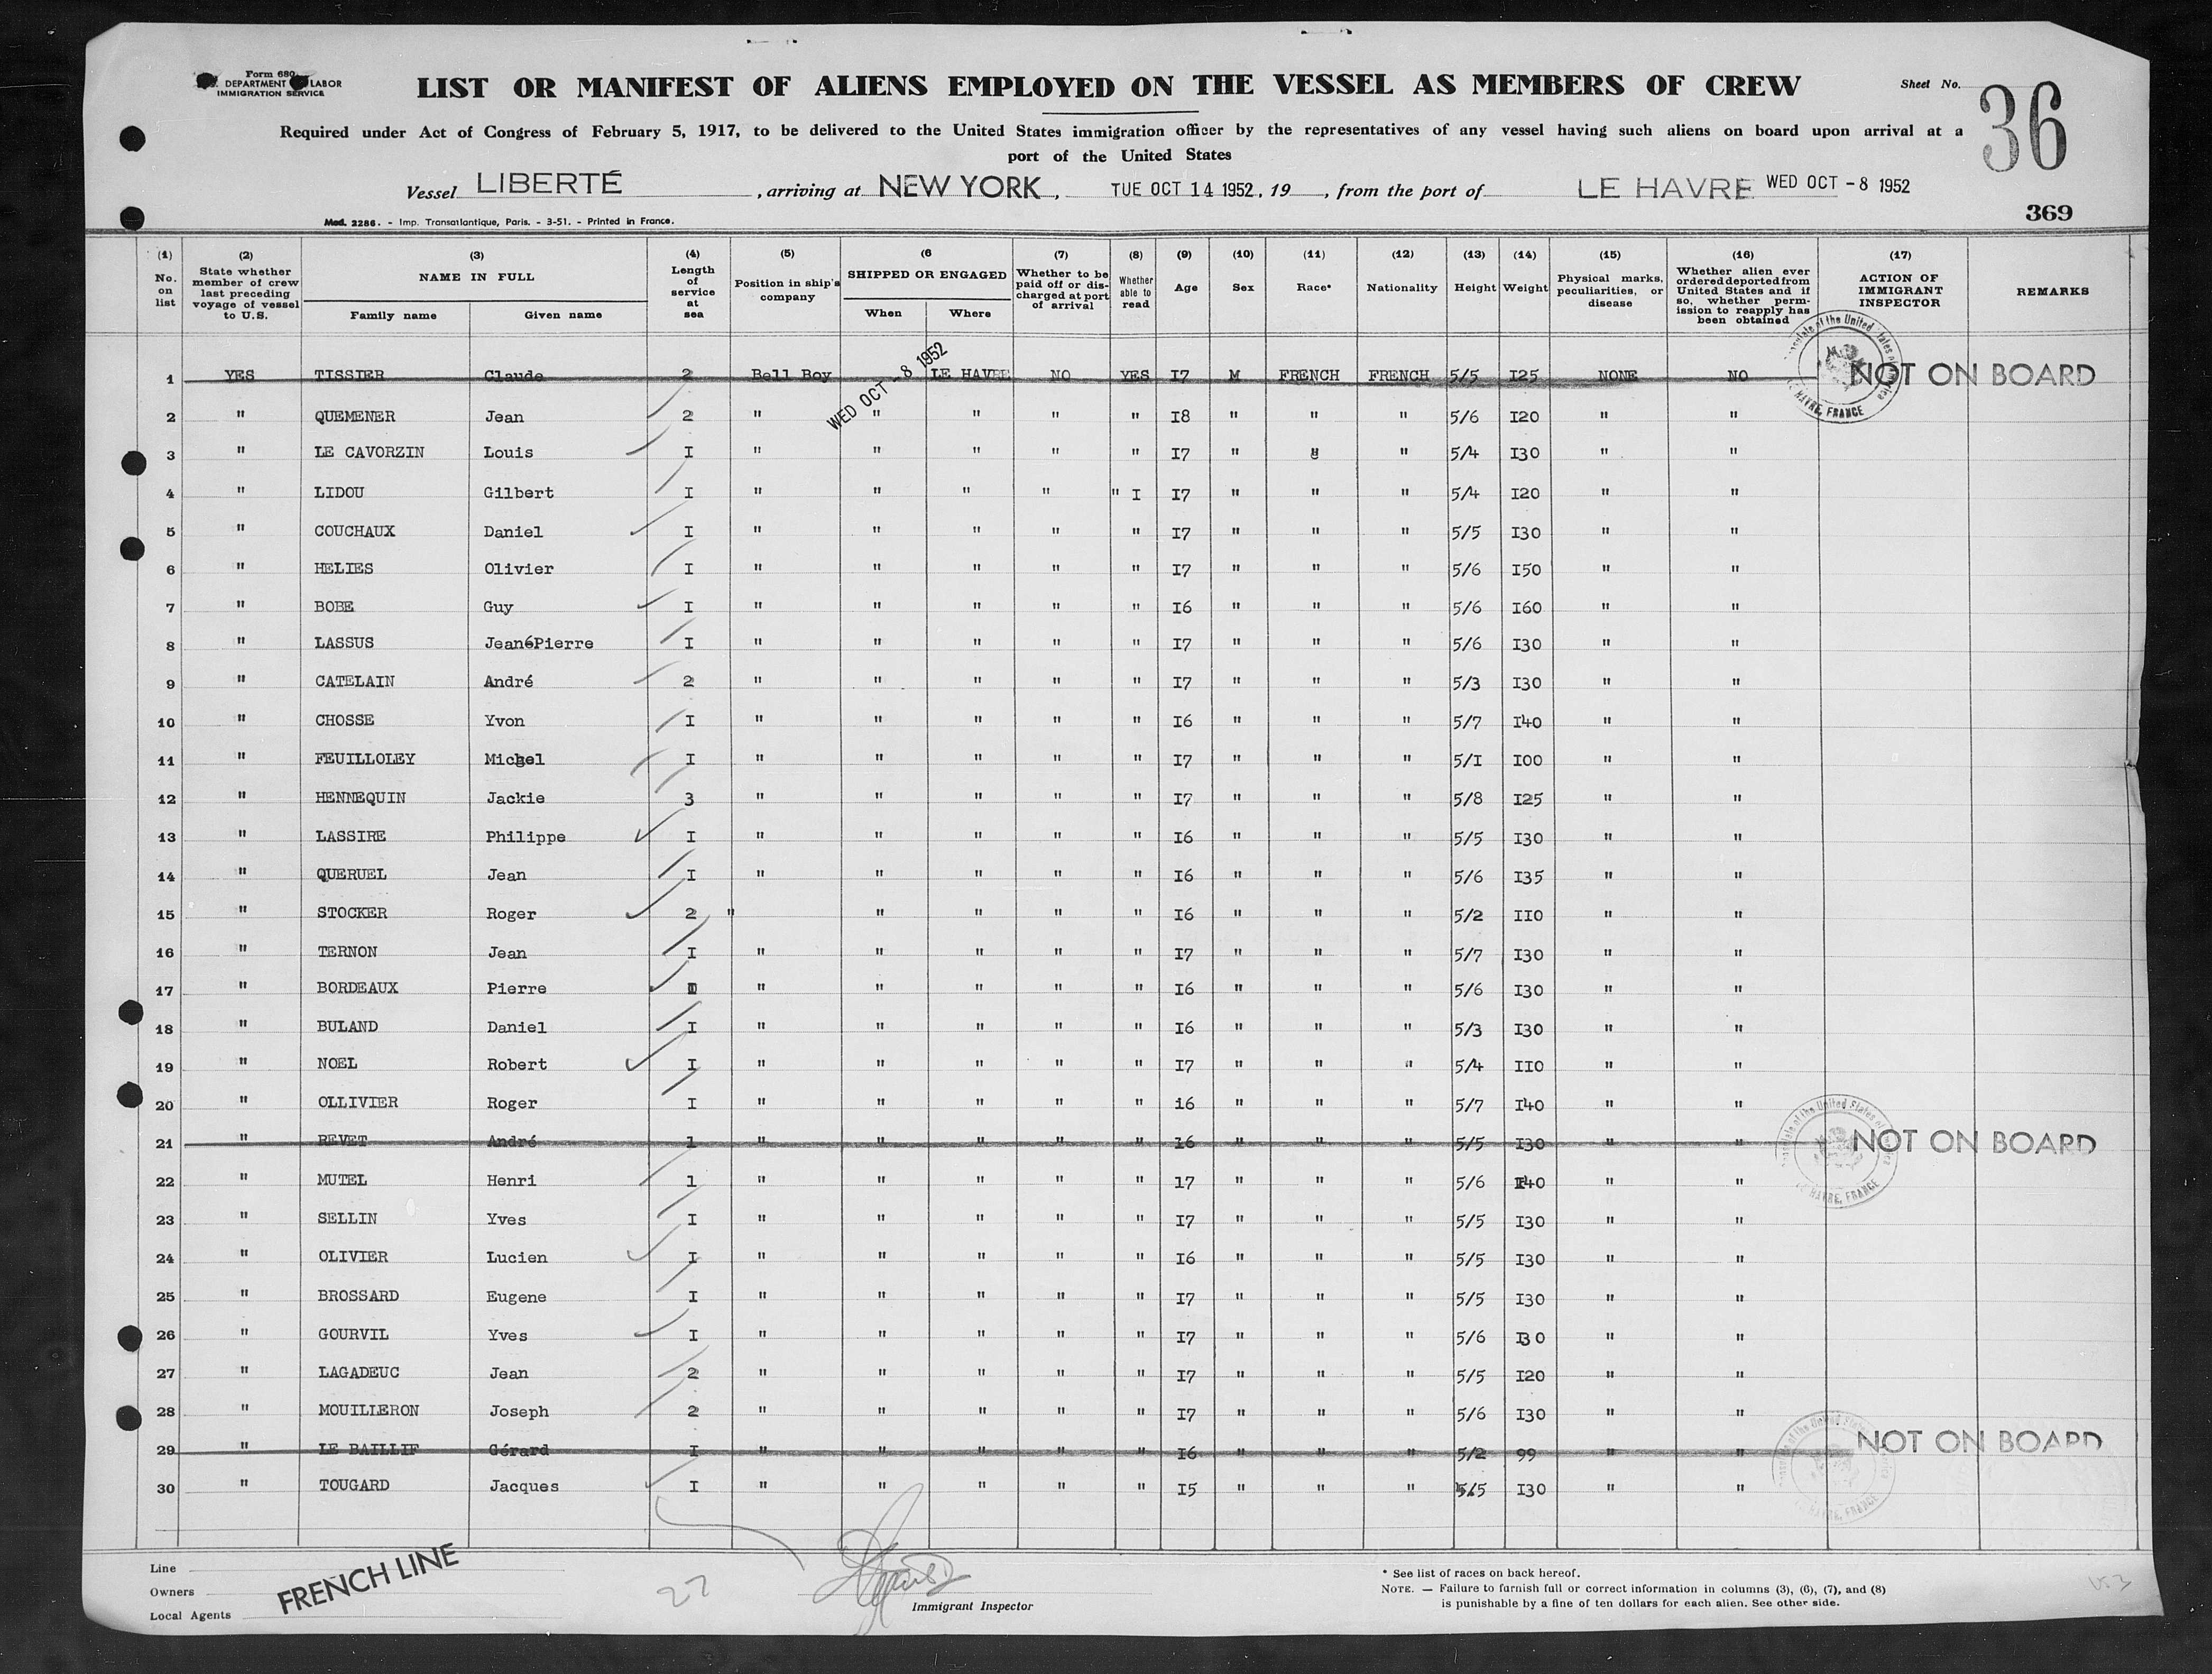 Form 680
DEPARTMENT LABOR
IMMIGRATION SERVICE
LIST OR MANIFEST OF ALIENS EMPLOYED ON THE VESSEL AS MEMBERS OF CREW
Sheet No. 36
Required under Act of Congress of February 5, 1917, to be delivered to the United States immigration officer by the representatives of any vessel having such aliens on board upon arrival at a
port of the United States
Vessel LIBERTÉ, arriving at NEW YORK, TUE OCT 14 1952, 19 , from the port of LE HAVRE WED OCT -8 1952
Mod. 2286. - Imp. Transatlantique, Paris. - 3-51. - Printed in France.
369
(1) No. on list
(2) State whether member of crew last preceding voyage of vessel to U.S.
(3) NAME IN FULL Family name Given name
(4) Length of service at sea
(5) Position in ship's company
(6 SHIPPED OR ENGAGED When Where
(7) Whether to be paid off or discharged at port of arrival
(8) Whether able to read
(9) Age
(10) Sex
(11) Race*
(12) Nationality
(13) Height
(14) Weight
(15) Physical marks, peculiarities, or disease
(16) Whether alien ever ordered deported from United States and if so, whether permission to reapply has been obtained
(17) ACTION OF IMMIGRANT INSPECTOR
REMARKS
WED OCT -8 1952
1 YES TISSIER Claude 2 Bell Boy LE HAVRE NO YES I7 M FRENCH FRENCH 5/5 I25 NONE NO NOT ON BOARD
2 " QUEMENER Jean 2 " " " " " I8 " " " 5/6 I20 " "
3 " LE CAVORZIN Louis I " " " " " I7 " " " 5/4 I30 " "
4 " LIDOU Gilbert I " " " " " I I7 " " " 5/4 I20 " "
5 " COUCHAUX Daniel I " " " " " I7 " " " 5/5 I30 " "
6 " HELIES Olivier I " " " " " I7 " " " 5/6 I50 " "
7 " BOBE Guy I " " " " " I6 " " " 5/6 I60 " "
8 " LASSUS JeanéPierre I " " " " " I7 " " " 5/6 I30 " "
9 " CATELAIN André 2 " " " " " I7 " " " 5/3 I30 " "
10 " CHOSSE Yvon I " " " " " I6 " " " 5/7 I40 " "
11 " FEUILLOLEY Michel I " " " " " I7 " " " 5/I I00 " "
12 " HENNEQUIN Jackie 3 " " " " " I7 " " " 5/8 I25 " "
13 " LASSIRE Philippe I " " " " " I6 " " " 5/5 I30 " "
14 " QUERUEL Jean I " " " " " I6 " " " 5/6 I35 " "
15 " STOCKER Roger 2 " " " " " I6 " " " 5/2 II0 " "
16 " TERNON Jean I " " " " " I7 " " " 5/7 I30 " "
17 " BORDEAUX Pierre I " " " " " I6 " " " 5/6 I30 " "
18 " BULAND Daniel I " " " " " I6 " " " 5/3 I30 " "
19 " NOEL Robert I " " " " " I7 " " " 5/4 II0 " "
20 " OLLIVIER Roger I " " " " " 16 " " " 5/7 I40 " "
21 " REVET André 1 " " " " " 16 " " " 5/5 I30 " " NOT ON BOARD
22 " MUTEL Henri 1 " " " " " 17 " " " 5/6 I40 " "
23 " SELLIN Yves I " " " " " I7 " " " 5/5 I30 " "
24 " OLIVIER Lucien I " " " " " I6 " " " 5/5 I30 " "
25 " BROSSARD Eugene I " " " " " I7 " " " 5/5 I30 " "
26 " GOURVIL Yves I " " " " " I7 " " " 5/6 I30 " "
27 " LAGADEUC Jean 2 " " " " " I7 " " " 5/5 I20 " "
28 " MOUILLERON Joseph 2 " " " " " I7 " " " 5/6 I30 " "
29 " LE BAILLIF Gérard I " " " " " I6 " " " 5/2 99 " " NOT ON BOARD
30 " TOUGARD Jacques I " " " " " I5 " " " 5/5 I30 " "
Line
Owners
Local Agents
FRENCH LINE
27
Immigrant Inspector
* See list of races on back hereof.
NOTE. — Failure to furnish full or correct information in columns (3), (6), (7), and (8)
is punishable by a fine of ten dollars for each alien. See other side.